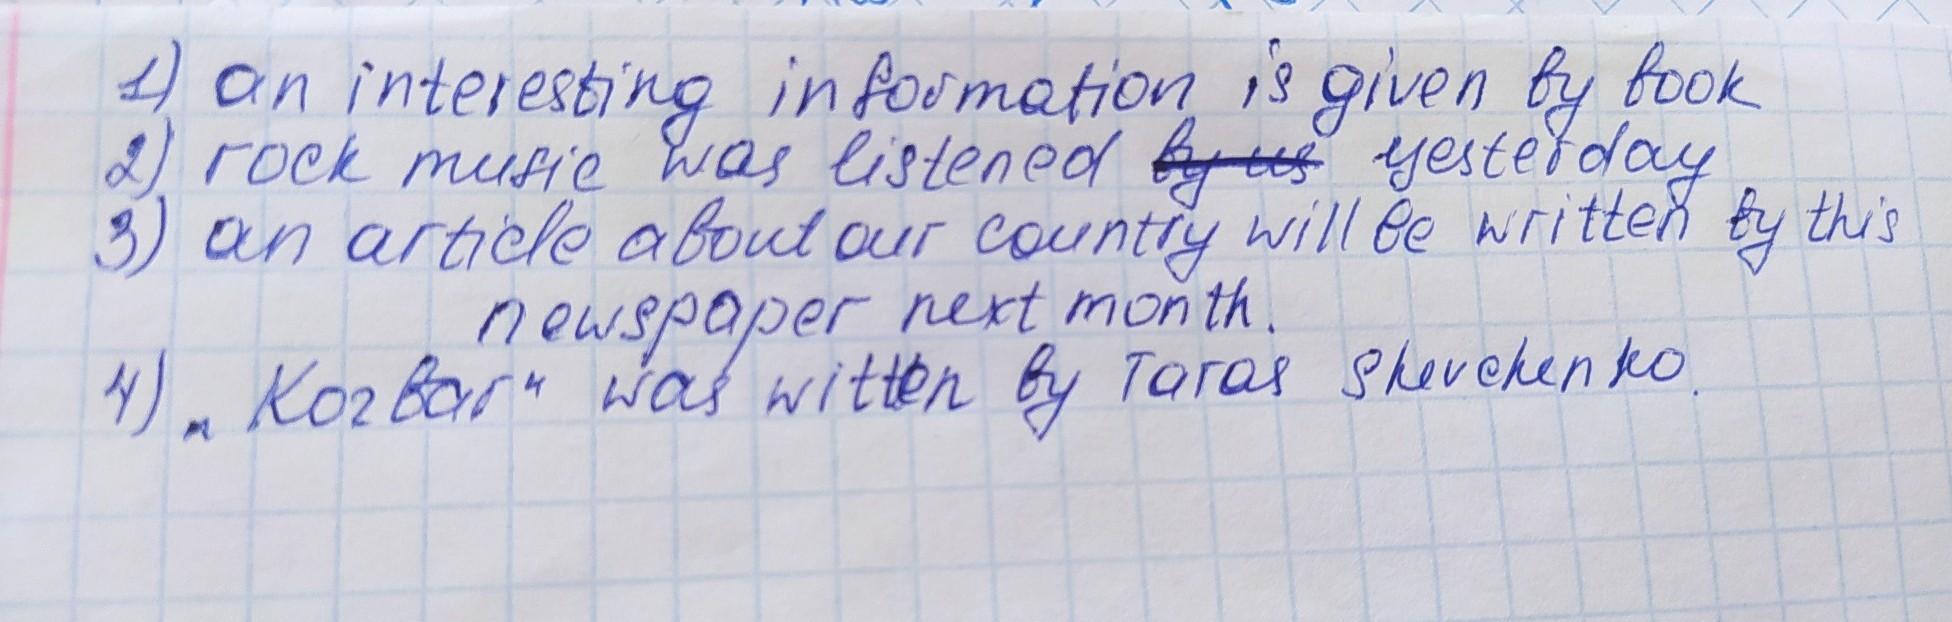 1) an interesting information is given by book
2) rock music was listened by us yesterday
3) an article about our country will be written by this
newspaper next month.
4) „Kozbar" was witten by Taras Shevchenko.